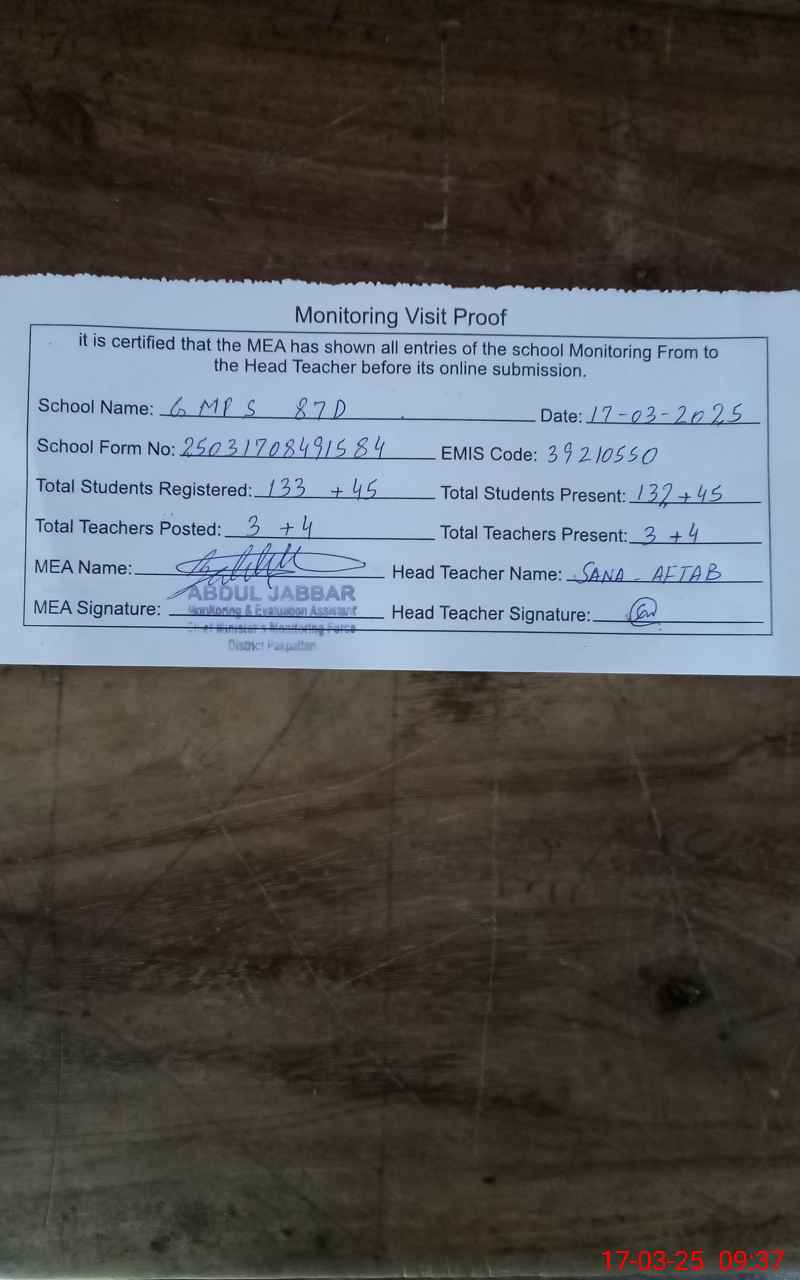 Monitoring Visit Proof
it is certified that the MEA has shown all entries of the school Monitoring From to
the Head Teacher before its online submission.
School Name: GMPS 87D Date: 17-03-2025
School Form No: 25031708491584 EMIS Code: 39210550
Total Students Registered: 133 + 45 Total Students Present: 132 + 45
Total Teachers Posted: 3 + 4 Total Teachers Present: 3 + 4
MEA Name: Head Teacher Name: SANA AFTAB
ABDUL JABBAR
MEA Signature: Monitoring & Evaluation Assistant Head Teacher Signature:
Chief Minister's Monitoring Force
District Pakpattan
17-03-25 09:37